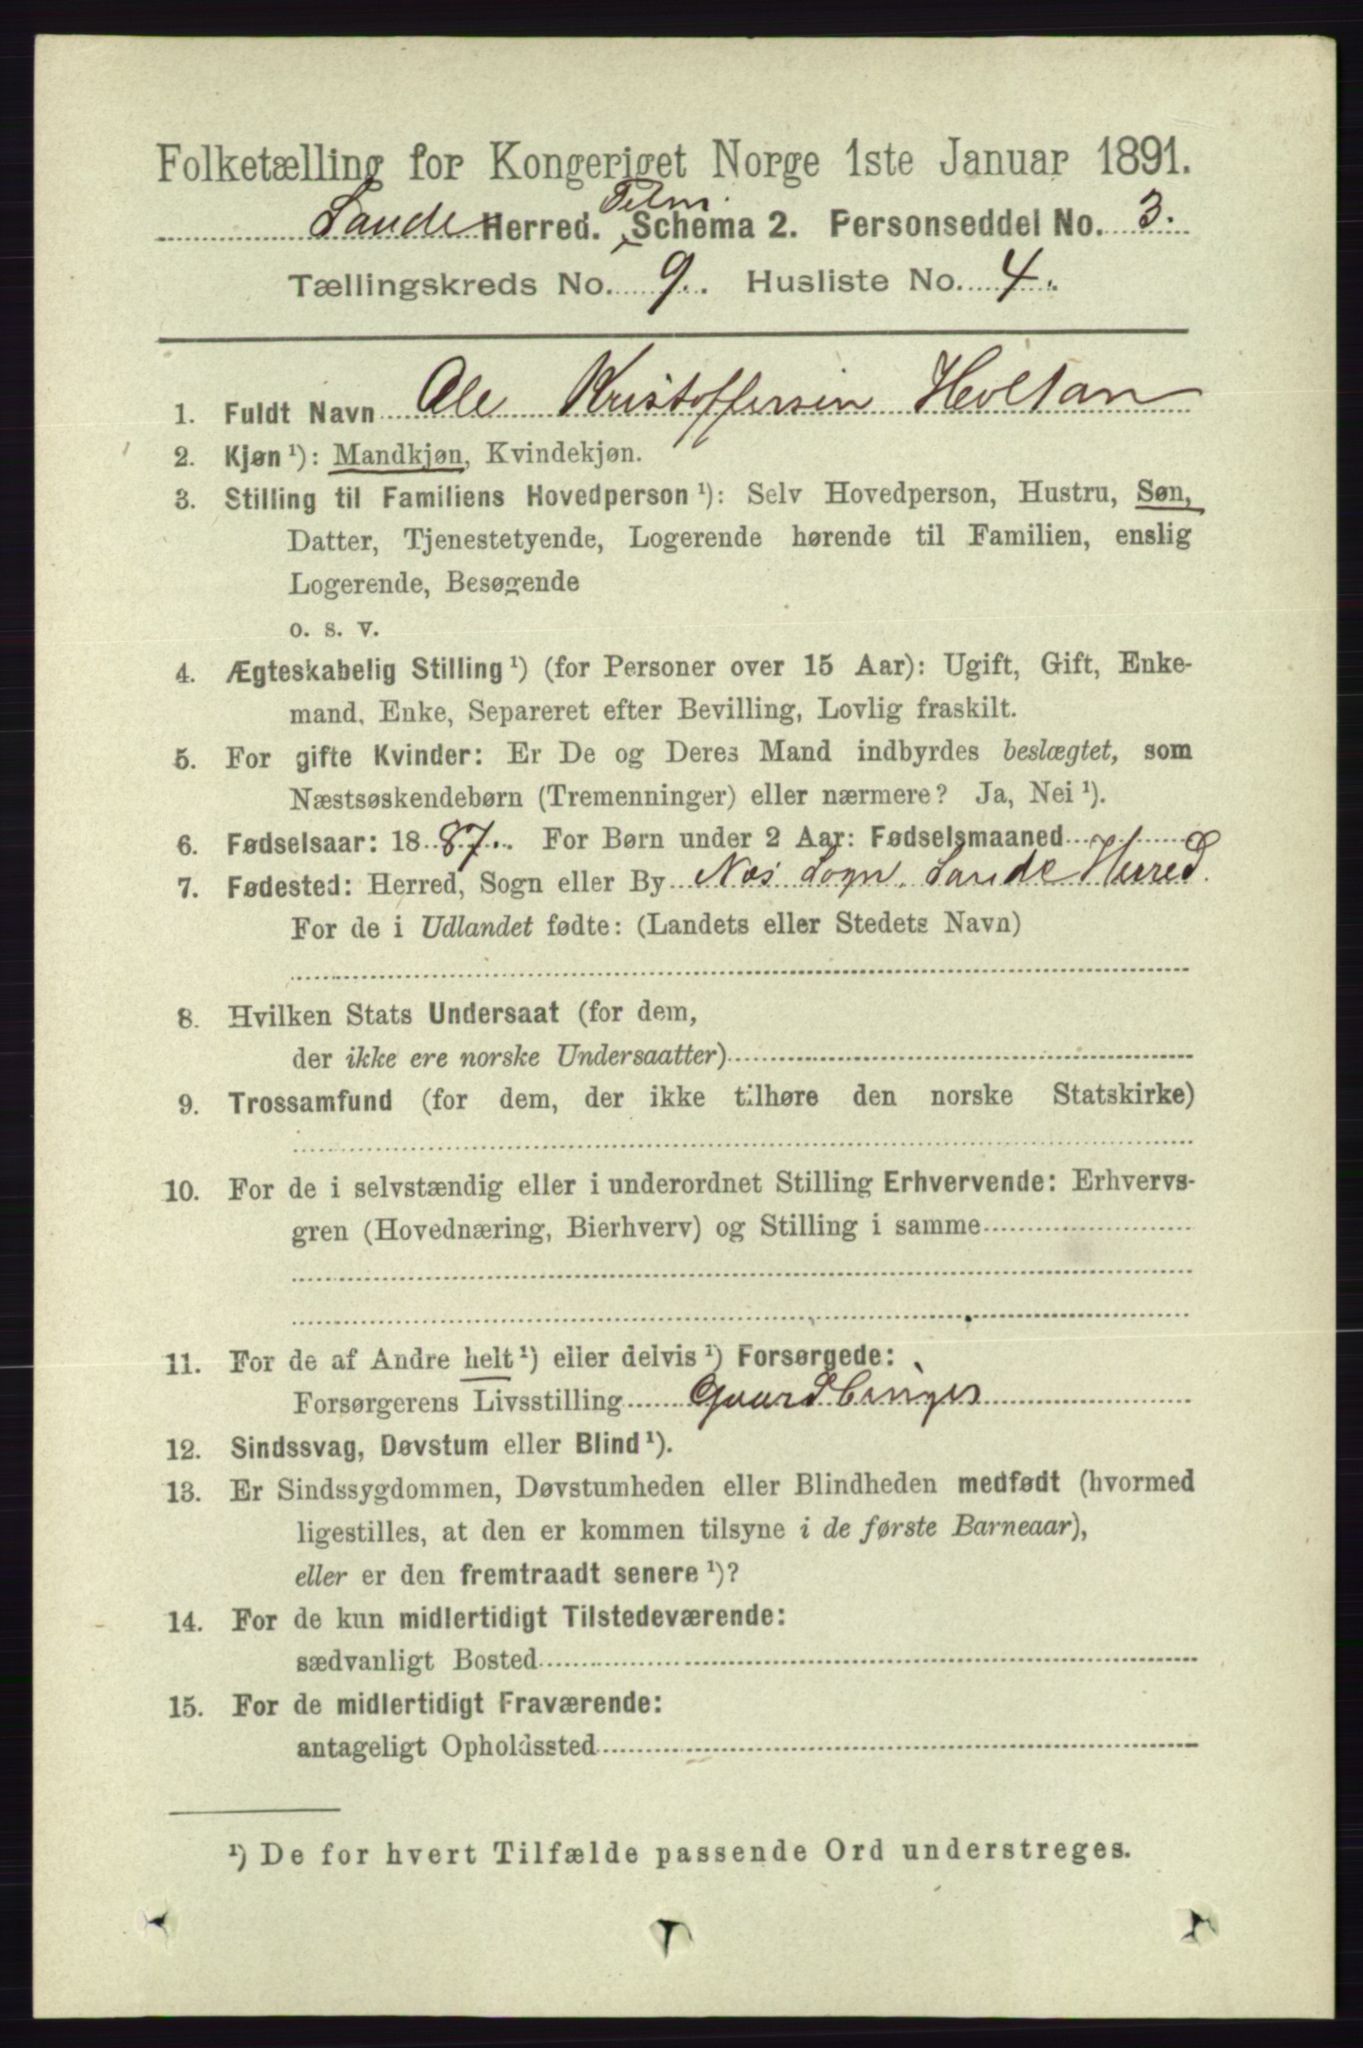 Folketælling for Kongeriget Norge 1ste Januar 1891.
Telm.
Saude Herred. Schema 2. Personseddel No. 3.
Tællingskreds No. 9. Husliste No. 4.
1. Fuldt Navn Ole Kristoffersen Holtan
2. Kjøn ¹): Mandkjøn, Kvindekjøn.
3. Stilling til Familiens Hovedperson ¹): Selv Hovedperson, Hustru, Søn,
Datter, Tjenestetyende, Logerende hørende til Familien, enslig
Logerende, Besøgende
o. s. v.
4. Ægteskabelig Stilling ¹) (for Personer over 15 Aar): Ugift, Gift, Enke-
mand, Enke, Separeret efter Bevilling, Lovlig fraskilt.
5. For gifte Kvinder: Er De og Deres Mand indbyrdes beslægtet, som
Næstsøskendebørn (Tremenninger) eller nærmere? Ja, Nei ¹).
6. Fødselsaar: 1887. For Børn under 2 Aar: Fødselsmaaned
7. Fødested: Herred, Sogn eller By Nes Sogn. Saude Herred
For de i Udlandet fødte: (Landets eller Stedets Navn)
8. Hvilken Stats Undersaat (for dem,
der ikke ere norske Undersaatter)
9. Trossamfund (for dem, der ikke tilhøre den norske Statskirke)
10. For de i selvstændig eller i underordnet Stilling Erhvervende: Erhvervs-
gren (Hovednæring, Bierhverv) og Stilling i samme
11. For de af Andre helt ¹) eller delvis ¹) Forsørgede:
Forsørgerens Livsstilling Gaardbruger
12. Sindssvag, Døvstum eller Blind ¹).
13. Er Sindssygdommen, Døvstumheden eller Blindheden medfødt (hvormed
ligestilles, at den er kommen tilsyne i de første Barneaar),
eller er den fremtraadt senere ¹)?
14. For de kun midlertidigt Tilstedeværende:
sædvanligt Bosted
15. For de midlertidigt Fraværende:
antageligt Opholdssted
¹) De for hvert Tilfælde passende Ord understreges.